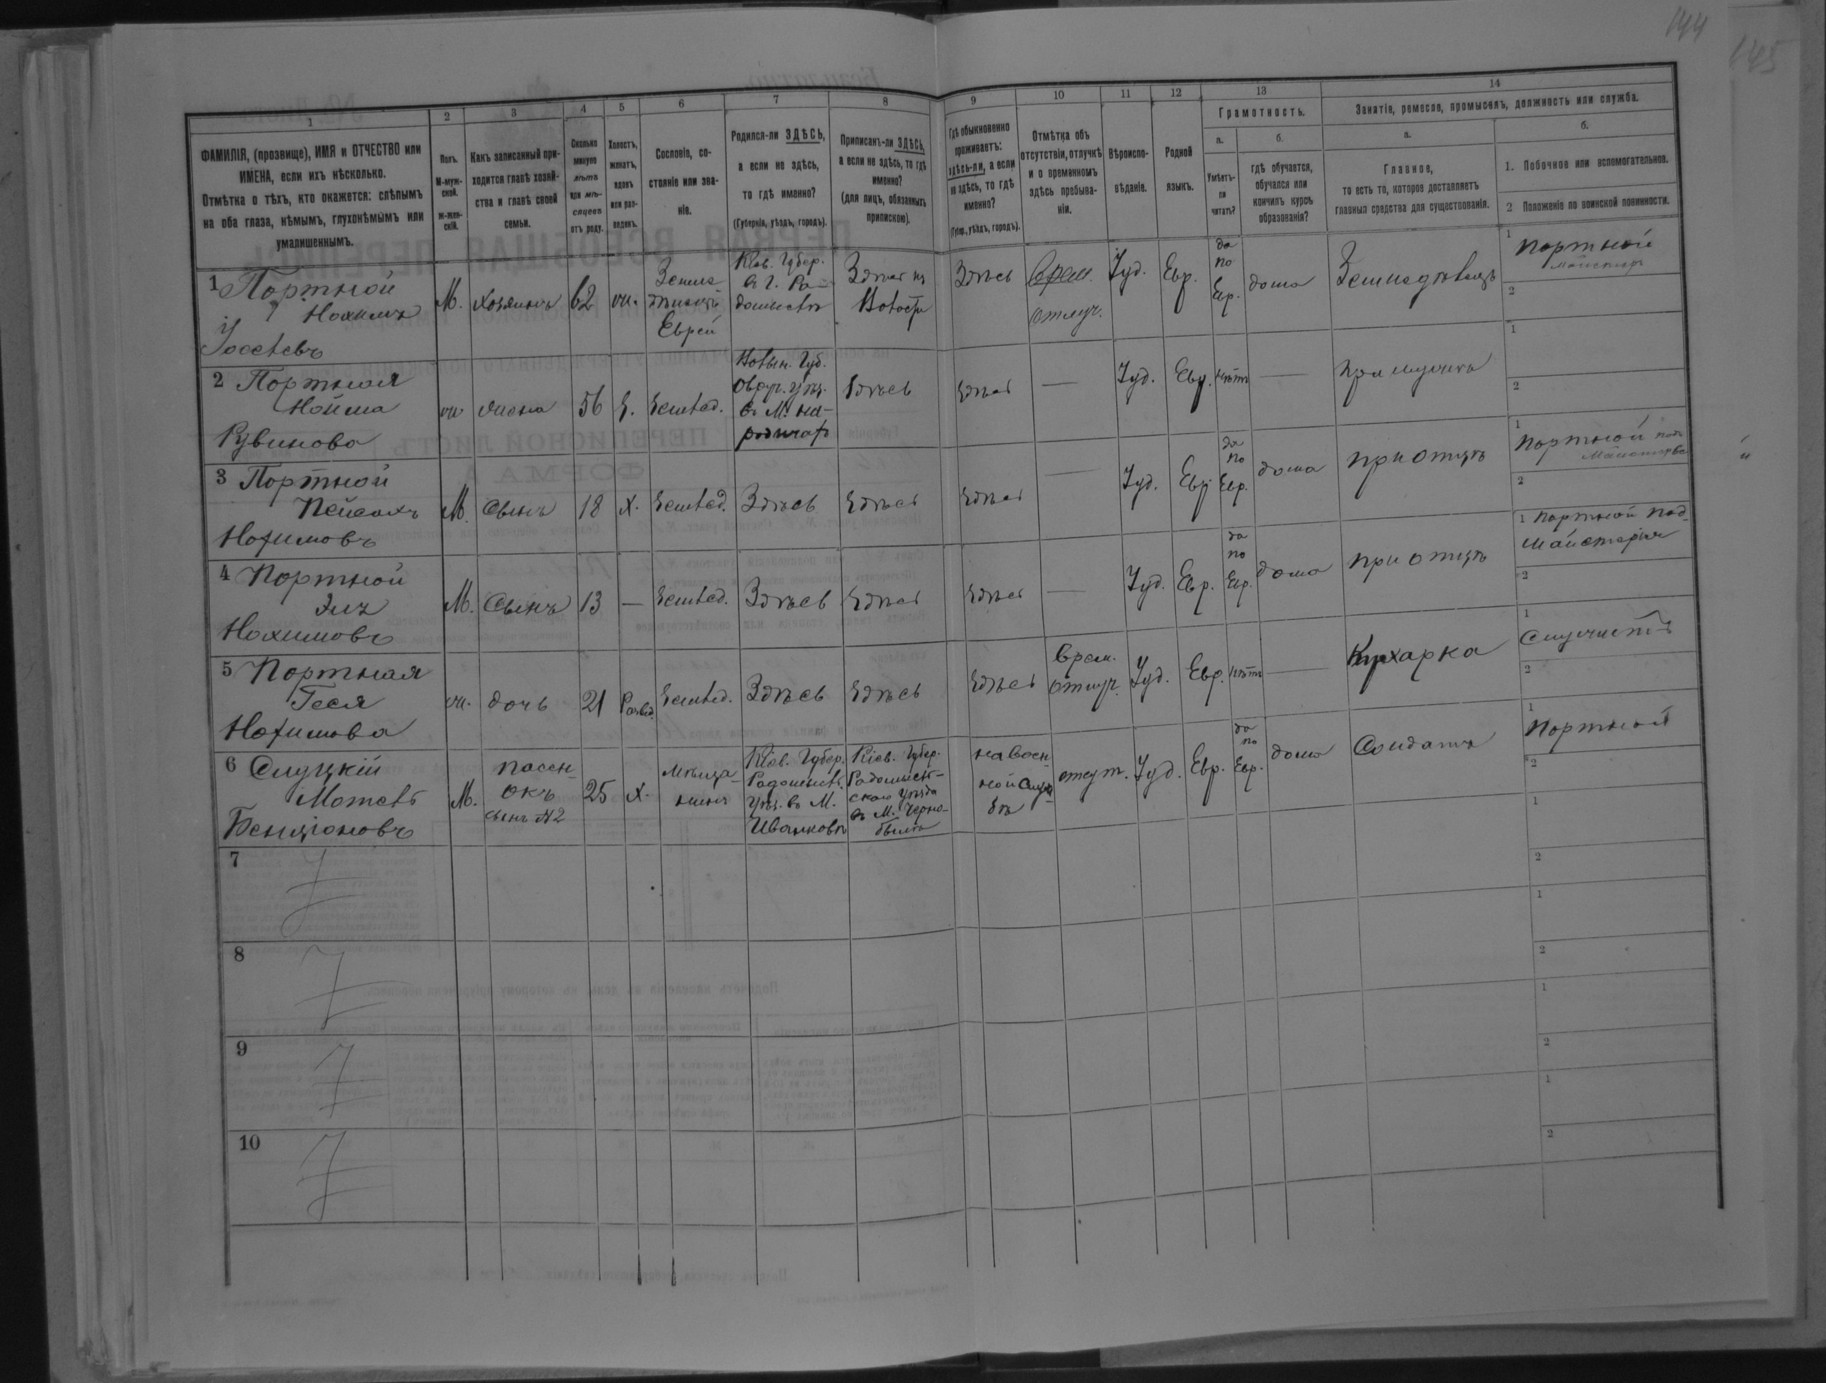 144
145
1
2
3
4
5
6
7
8
9
10
11
12
13
14
ФАМИЛІЯ, (прозвище), ИМЯ и ОТЧЕСТВО или
ИМЕНА, если ихъ нѣсколько.
Отмѣтка о тѣхъ, кто окажется: слѣпымъ
на оба глаза, нѣмымъ, глухонѣмымъ или
умалишеннымъ.
Полъ.
М-муж-
ской.
Ж-жен-
скій.
Какъ записанный при-
ходится главѣ хозяй-
ства и главѣ своей
семьи.
Сколько
минуло
лѣтъ
или мѣ-
сяцевъ
отъ роду.
Холостъ,
женатъ,
вдовъ
или раз-
веденъ.
Сословіе, со-
стояніе или зва-
ніе.
Родился-ли ЗДѢСЬ,
а если не здѣсь,
то гдѣ именно?
(Губернія, уѣздъ, городъ).
Приписанъ-ли ЗДѢСЬ,
а если не здѣсь, то гдѣ
именно?
(для лицъ, обязанныхъ
припискою).
Гдѣ обыкновенно
проживаетъ:
здѣсь-ли, а если
не здѣсь, то гдѣ
именно?
(Губер., уѣздъ, городъ).
Отмѣтка объ
отсутствіи, отлучкѣ
и о временномъ
здѣсь пребыва-
ніи.
Вѣроиспо-
вѣданіе.
Родной
языкъ.
Грамотность.
а.
б.
Умѣетъ-
ли
читать?
гдѣ обучается,
обучался или
кончилъ курсъ
образованія?
Занятіе, ремесло, промыселъ, должность или служба.
а.
б.
Главное,
то есть то, которое доставляетъ
главныя средства для существованія.
1. Побочное или вспомогательное.
2 Положеніе по воинской повинности.
1 Портной
Нохимъ
Іосевъ
М. хозяинъ 62 ж.
Еврей
Кіев. Губер.
Здѣсь
Врем.
отлуч.
Іуд. Евр.
да
по
Евр.
дома
Земледѣлецъ
1 Портной
2
2 Портная
Нойма
Рувинова
ж жена 56 З. Землед.
Волын. Губ.
Овруч. уѣз.
въ М. На-
родичах
Здѣсь
Здѣсь
—
Іуд. Евр. нѣтъ —
при мужѣ
1
2
3 Портной
Пейсахъ
Нохимовъ
М. Сынъ 18 Х. Землед. Здѣсь Здѣсь Здѣсь
—
Іуд. Евр.
да
по
Евр.
дома
при отцѣ
1 Портной
2
4 Портной
Нохимовъ
М. Сынъ 13 — Землед. Здѣсь Здѣсь Здѣсь —
Іуд. Евр.
да
по
Евр.
дома
при отцѣ
1 Портной под-
майстерья
2
5 Портная
Геся
Нохимова
ж. дочь 21 Развед. Землед. Здѣсь Здѣсь Здѣсь
Врем.
отлуч.
Іуд. Евр. нѣтъ —
Кухарка
1
2
6 Слуцкій
Мотель
Бенціоновъ
М.
пасын-
окъ
сынъ №2
25 Х.
мѣща-
нинъ
Кіев. Губер.
Радомысл.
уѣз. въ М.
Иванковѣ
Кіев. Губер.
Радомысль-
скаго уѣзда
въ М. Черно-
былѣ
на воен-
ной служ-
бѣ
отсут. Іуд. Евр.
да
по
Евр.
дома
Солдатъ
1 Портной
2
7
1
2
8
1
2
9
1
2
10
1
2